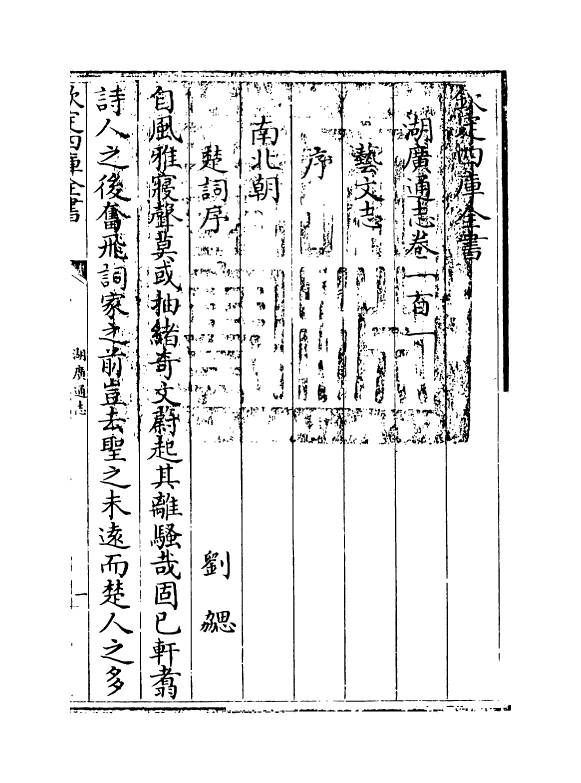 欽定四庫全書
湖廣通志卷一百一
藝文志
序
南北朝
楚詞序 劉勰
自風雅寢聲莫或抽緒奇文蔚起其離騷哉固已軒翥
詩人之後奮飛詞家之前豈去聖之未遠而楚人之多
欽定四庫全書
湖廣通志
一